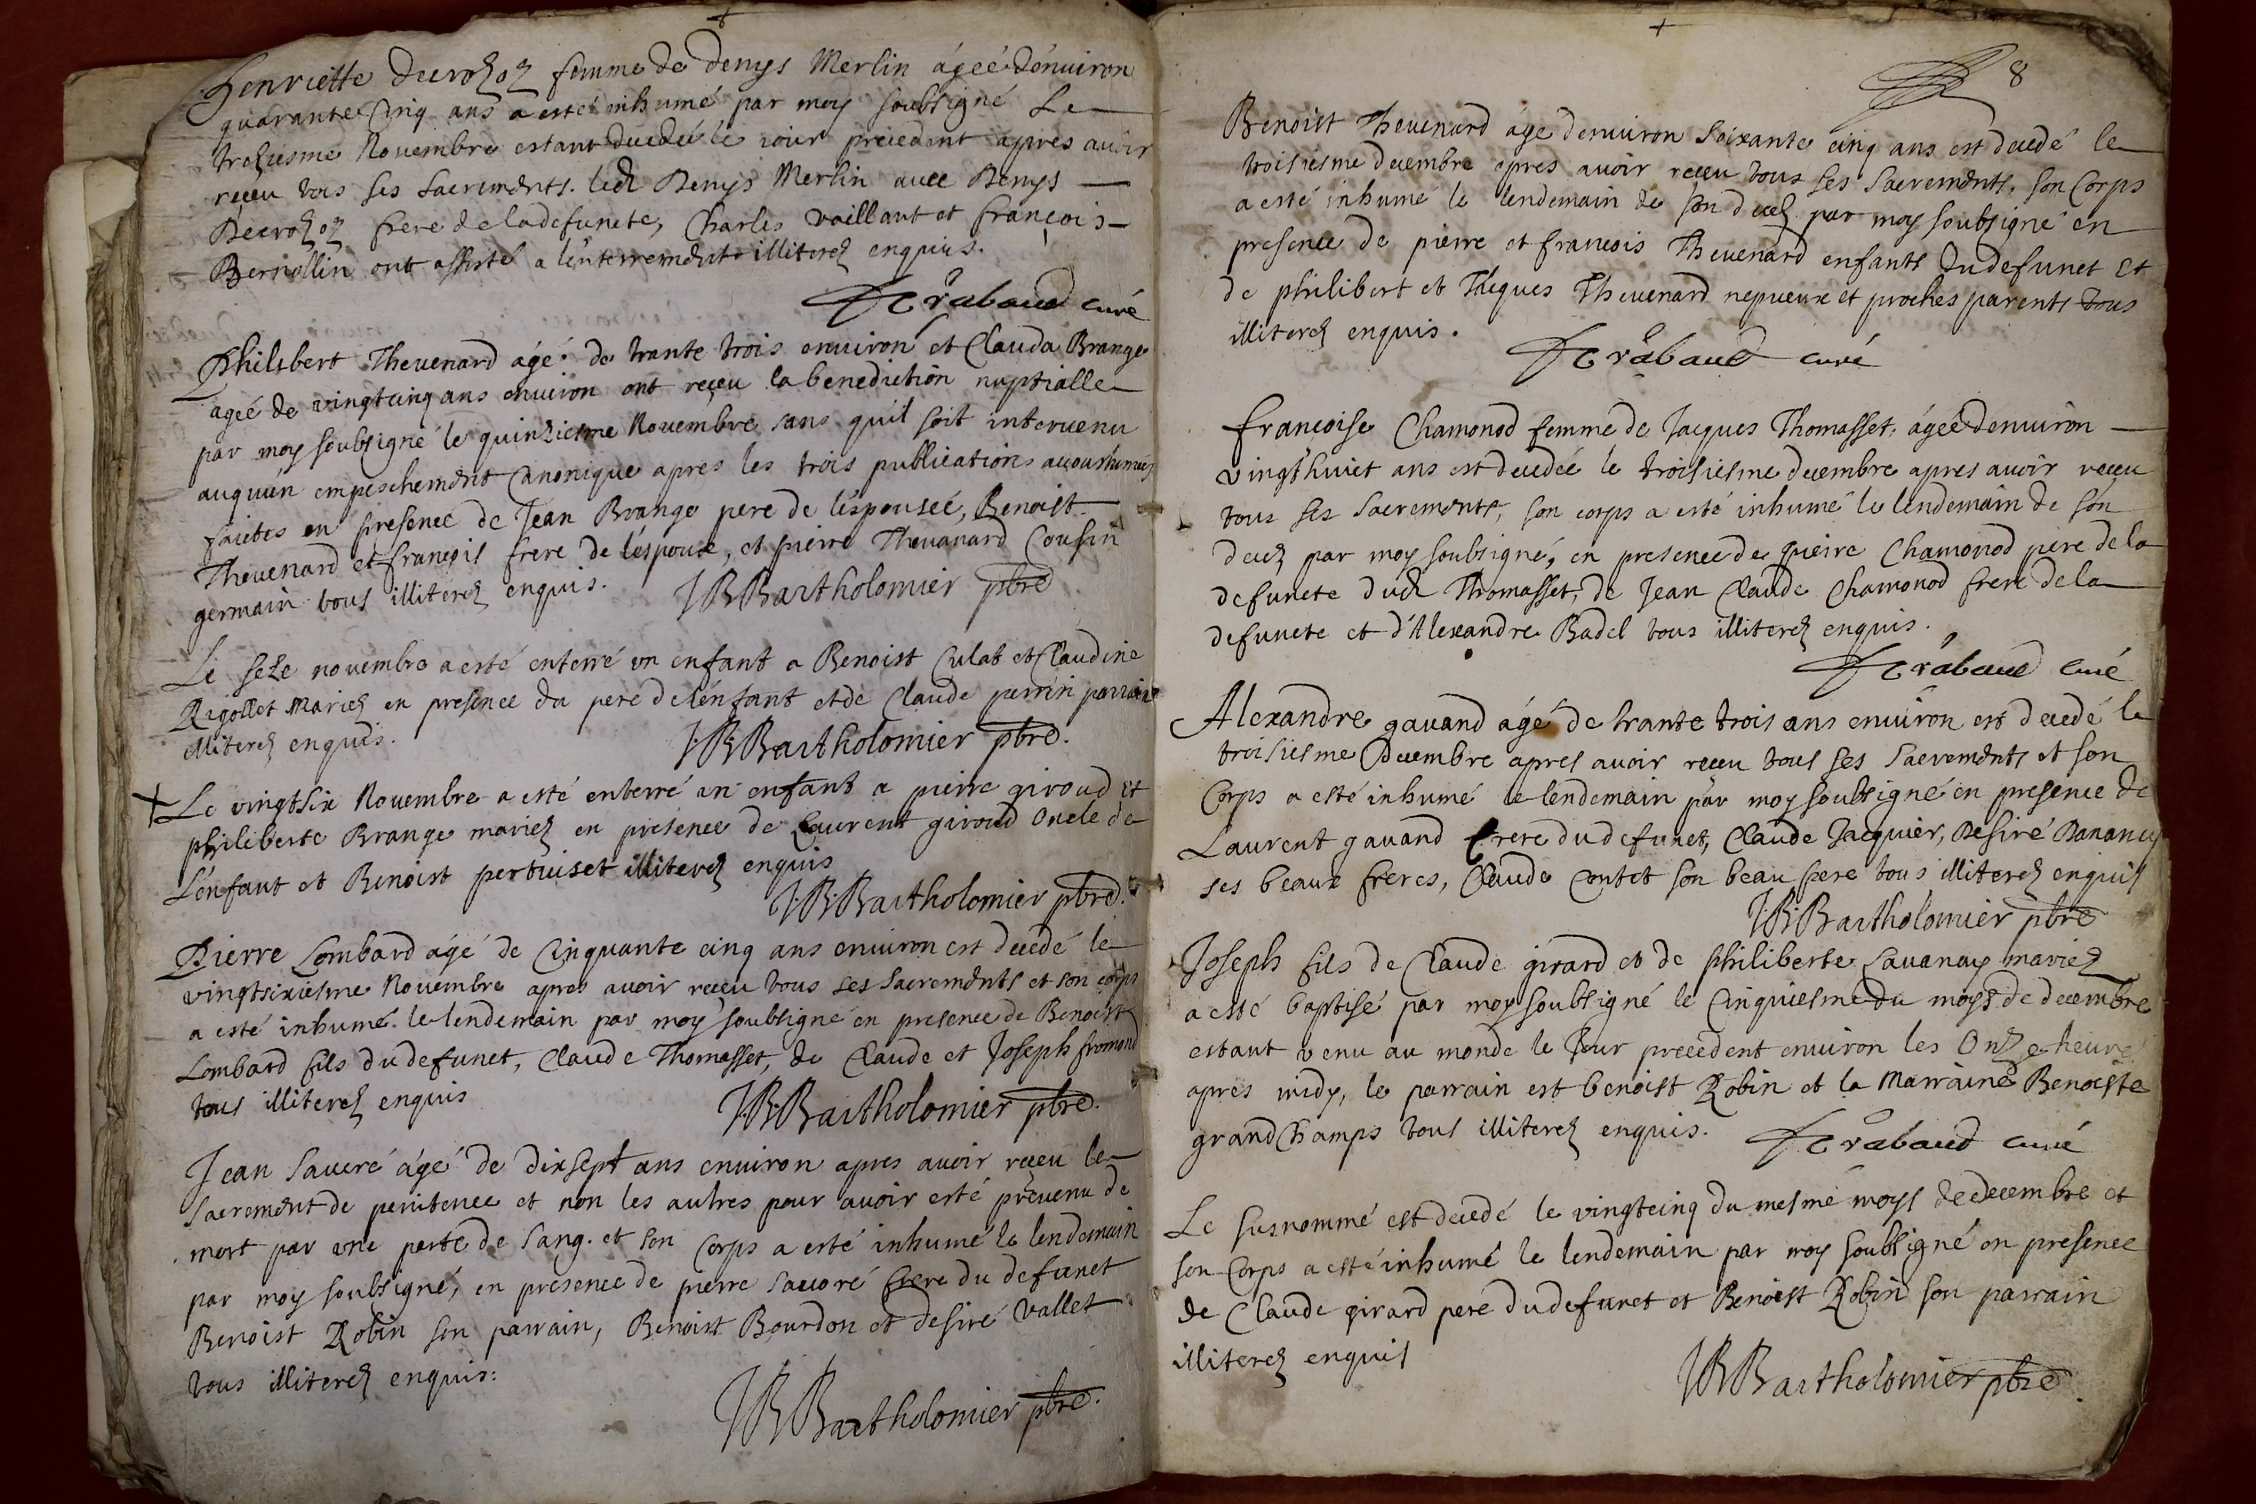 Henriette Decrozoz femme de denys Merlin ágeé dénuiron
quarante Cinq ans a esté inhumé par moy soubsigné Le
trezesme Nouembre estant decedeé le iour precedent apres auoir
receu tous ses sacrements. led Denys Merlin auec Denys
Decrozoz frere de la defuncte, Charles vaillant et françois
Berriollin ont assisté a lénterrement illiterez enquis.
rabaud curé
Philibert Theuenard ágé de trante trois enuiron et Clauda Brange
ageé de vingtcinq ans enuiron ont receu la benediction nuptialle
par moy soubsigné le quinziesme Nouembre sans quil soit interuenu
auquún empeschement Canonique apres les trois publications accoustumeés
faictes en presence de Jean Brange pere de léspouseé, Benoist
Theuenard et françois frere de léspoux, et pierre Theuanard Cousin
germain tous illiterez enquis. JBBartholomier pbre
Le seze nouembre a esté enterré vn enfant a Benoist Culat et Claudine
Rigollet Mariez en presence du pere de lénfant et de Claude perrin parrain
illiterez enquis. J.B.Bartholomier pbre.
+ Le vingtsix Nouembre a esté enterré un enfant a pierre giroud et
philiberte Brange mariez en presence de Laurent giroud oncle de
Lénfant et Benoist pertuiset illiterez enquis
J.B.Bartholomier pbre.
Pierre Lombard ágé de Cinquante cinq ans enuiron est decedé le
vingtsixiesme Nouembre apres auoir receu tous ses sacrements et son corps
a esté inhumé le lendemain par moy soubsigné en presence de Benoist
Lombard fils du defunct, Claude Thomasset, de Claude et Joseph fromond
tous illiterez enquis J.B.Bartholomier pbre.
Jean Sauoré ágé de dixsept ans enuiron apres auoir receu le
sacrement de penitence et non les autres pour auoir esté preuenu de
mort par vne perte de sang. et son Corps a esté inhumé le lendemain
par moy soubsigné, en presence de pierre sauoré frere du defunct
Benoist Robin son parrain, Benoist Bourdon et desiré vallet
tous illiterez enquis:
JBBartholomier pbre.
8
Benoist Theuenard ágé denuiron soixante cinq ans est decedé le
troisiesme decembre apres auoir receu tous ses sacrements, son Corps
a esté inhumé le lendemain de son decez par moy soubsigné en
presence de pierre et francois Theuenard enfants du defunct et
de philibert et Theuenard nepueux et proches parents tous
illiterez enquis.
rabaud curé
françoise Chamonod femme de Jacques Thomasset, ágeé denuiron
vingthuict ans est decedeé le troisiesme decembre apres auoir receu
tous ses sacrements, son corps a esté inhumé le lendemain de son
decez par moy soubsigné, en presence de pierre Chamonod pere de la
defuncte dud Thomasset, de Jean Claude Chamonod frere de la
defuncte et d'Alexandre Badel tous illiterez enquis.
rabaud curé
Alexandre gauand ágé de trante trois ans enuiron est decedé le
troisiesme Decembre apres auoir receu tous ses sacrements et son
Corps a esté inhumé le lendemain par moy soubsigné en presence de
Laurent gauand frere du defunct, Claude Jacquier, Desiré
ses beaux freres, Claude Contet son beau pere tous illiterez enquis
JB.Bartholomier pbre
Joseph fils de Claude girard et de philiberte Sauanay mariez
a esté baptisé par moy soubsigné le Cinquiesme du moys de decembre
estant venu au monde le Jour precedent enuiron les Onze heure
apres midy, le parrain est benoist Robin et la Marraine Benoiste
grandChamps tous illiterez enquis. rabaud curé
Le susnommé est decedé le vingtcinq du mesme moys de decembre et
son Corps a esté inhumé le lendemain par moy soubsigné en presence
de Claude girard pere du defunct et Benoist Robin son parrain
illiterez enquis
JBBartholomier pbre.